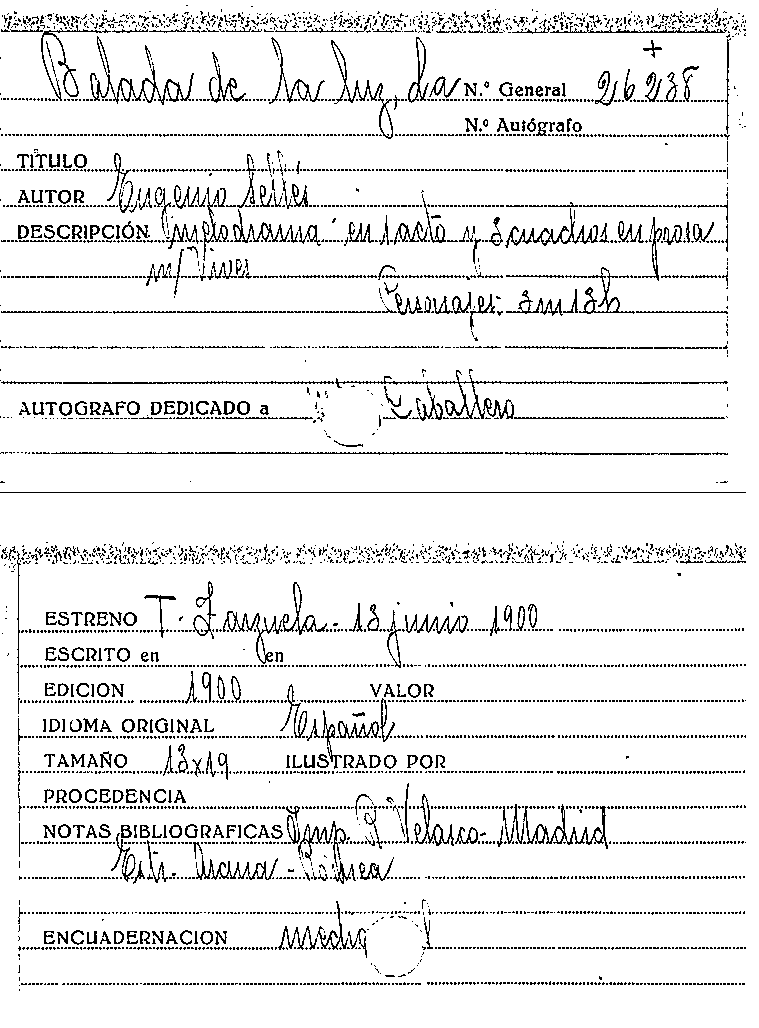 +
Balada de la luz, La N.º General 26238
N.º Autógrafo
TÍTULO
AUTOR Eugenio Sellés
DESCRIPCIÓN melodrama en 1 acto y 3 cuadros en prosa
m/ Vives
Personajes: 3m 13h
AUTOGRAFO DEDICADO a Caballero
ESTRENO T. Zarzuela - 13 junio 1900
ESCRITO en en
EDICION 1900 VALOR
IDIOMA ORIGINAL Español
TAMAÑO 13x19 ILUSTRADO POR
PROCEDENCIA
NOTAS BIBLIOGRAFICAS Imp. R Velasco - Madrid
Estr. Arana -
ENCUADERNACION